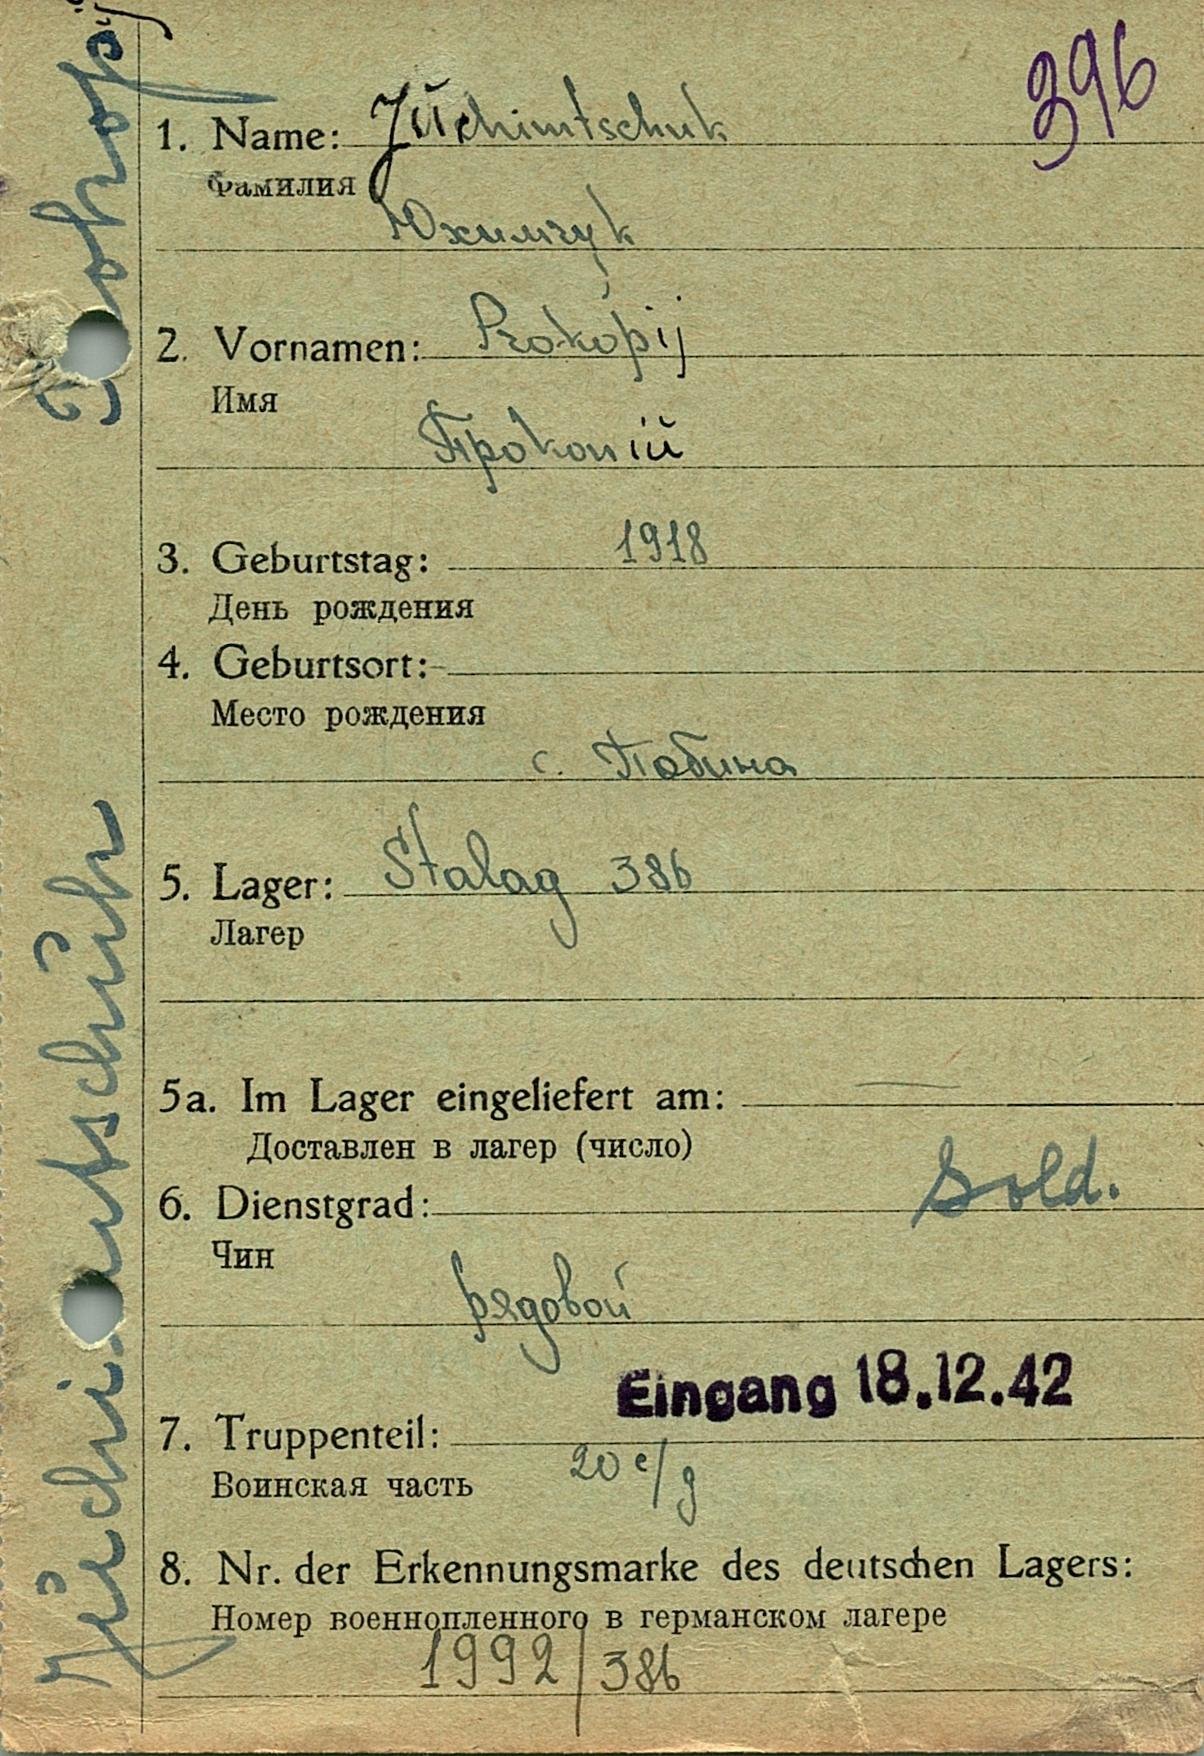 396
1. Name: Jŭchimtschuk
Фамилия
Юхимчук
2. Vornamen: Prokopij
Имя
Прокопій
3. Geburtstag: 1918
День рождения
4. Geburtsort:
Место рождения
с.
5. Lager: Stalag 386
Лагер
5a. Im Lager eingeliefert am:
Доставлен в лагер (число)
6. Dienstgrad: Sold.
Чин
рядовой
Eingang 18.12.42
7. Truppenteil:
Воинская часть
20 с/д
8. Nr. der Erkennungsmarke des deutschen Lagers:
Номер военнопленного в германском лагере
1992/386